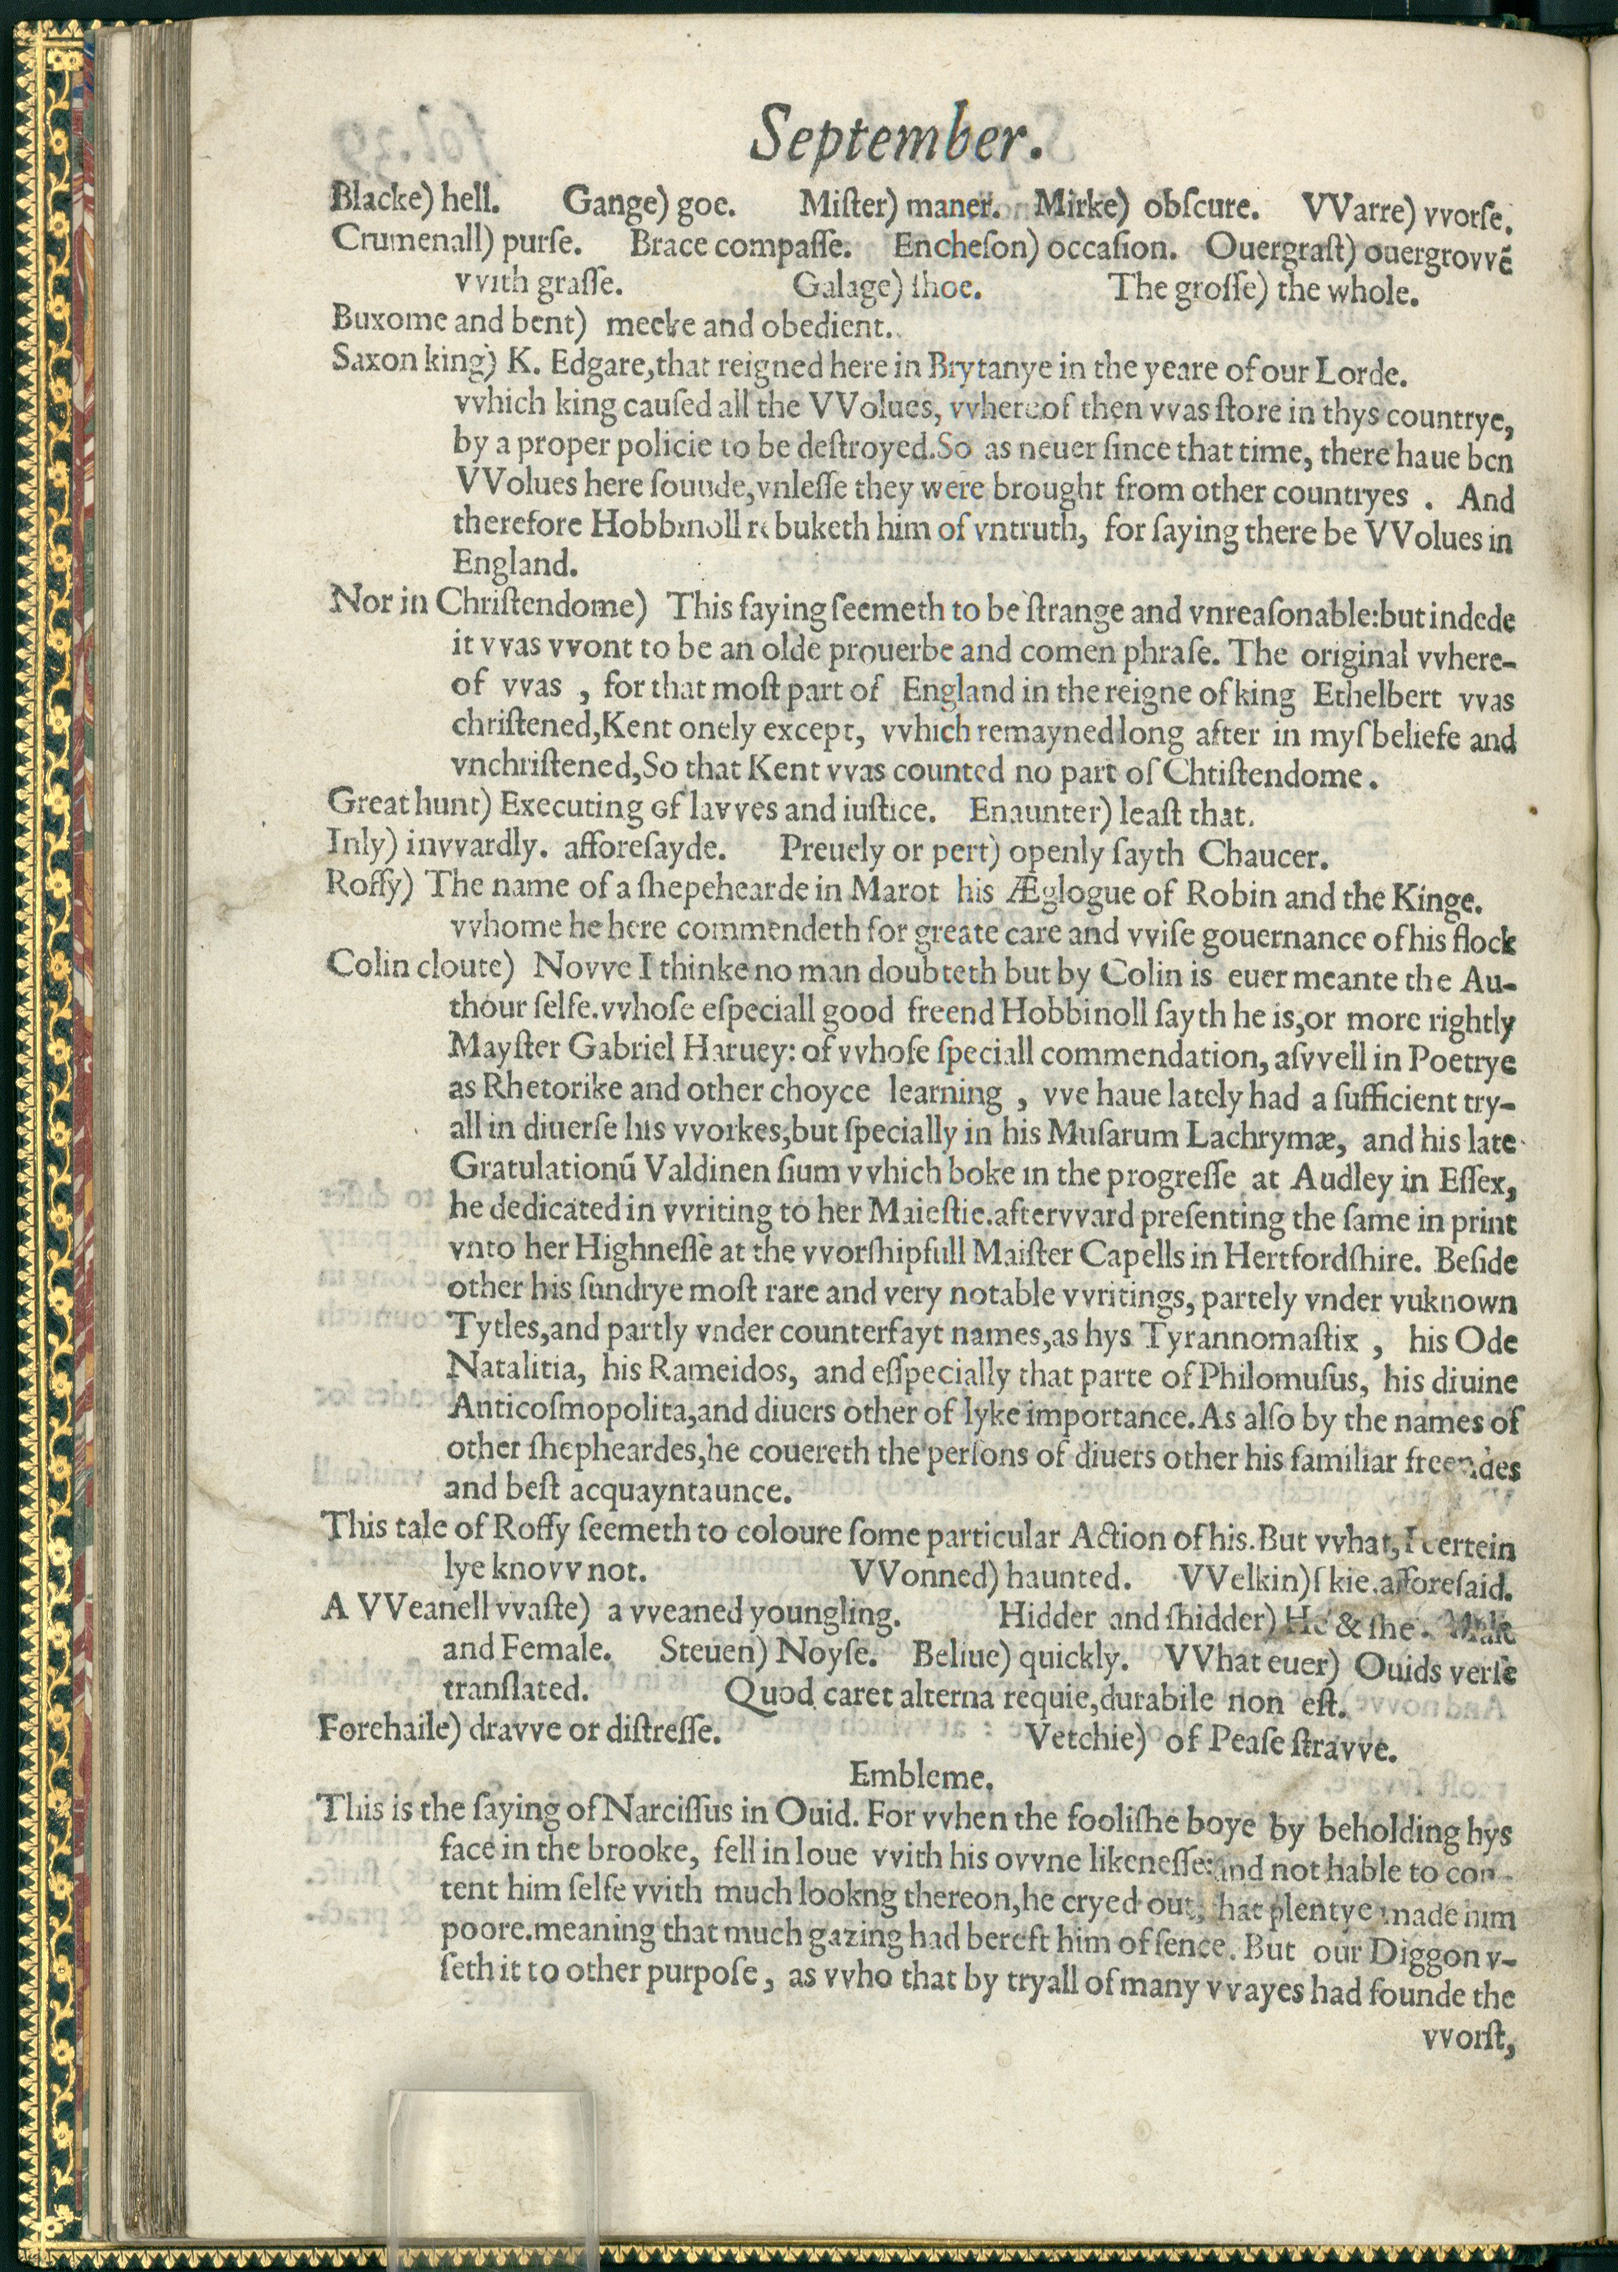 September.
Blacke) hell. Gange) goe. Miſter) maner. Mirke) obſcure. VVarre) vvorſe.
Crumenall) purſe. Brace compaſſe. Encheſon) occaſion. Ouergraſt) ouergrovvē
vvith graſſe. Galage) ſhoe. The groſſe) the whole.
Buxome and bent) meeke and obedient.
Saxon king) K. Edgare,that reigned here in Brytanye in the yeare of our Lorde.
vvhich king cauſed all the VVolues, vvhereof then vvas ſtore in thys countrye,
by a proper policie to be deſtroyed.So as neuer ſince that time, there haue ben
VVolues here founde,vnleſſe they were brought from other countryes . And
therefore Hobbinoll rebuketh him of vntruth, for ſaying there be VVolues in
England.
Nor in Chriſtendome) This ſaying ſeemeth to be ſtrange and vnreaſonable:but indede
it vvas vvont to be an olde prouerbe and comen phraſe. The original vvhere-
of vvas , for that moſt part of England in the reigne of king Ethelbert vvas
chriſtened,Kent onely except, vvhich remayned long after in myſbeliefe and
vnchriſtened,So that Kent vvas counted no part of Chtiſtendome.
Great hunt) Executing of lavves and iuſtice. Enaunter) leaſt that.
Inly) invvardly. afforeſayde. Preuely or pert) openly ſayth Chaucer.
Roffy) The name of a ſhepehearde in Marot his Æglogue of Robin and the Kinge.
vvhome he here commendeth for greate care and vviſe gouernance of his flock
Colin cloute) Novve I thinke no man doubteth but by Colin is euer meante the Au-
thour ſelfe.vvhoſe eſpeciall good freend Hobbinoll ſayth he is,or more rightly
Mayſter Gabriel Haruey: of vvhoſe ſpeciall commendation, aſvvell in Poetrye
as Rhetorike and other choyce learning , vve haue lately had a ſufficient try-
all in diuerſe his vvorkes,but ſpecially in his Muſarum Lachrymæ, and his late
Gratulationū Valdinen ſium vvhich boke in the progreſſe at Audley in Eſſex,
he dedicated in vvriting to her Maieſtie.aftervvard preſenting the ſame in print
vnto her Highneſſe at the vvorſhipfull Maiſter Capells in Hertfordſhire. Beſide
other his ſundrye moſt rare and very notable vvritings, partely vnder vuknown
Tytles,and partly vnder counterfayt names,as hys Tyrannomaſtix , his Ode
Natalitia, his Rameidos, and eſſpecially that parte of Philomuſus, his diuine
Anticoſmopolita,and diuers other of lyke importance.As alſo by the names of
other ſhepheardes,he couereth the perſons of diuers other his familiar freendes
and beſt acquayntaunce.
This tale of Roffy ſeemeth to coloure ſome particular Action of his.But vvhat, I certein
lye knovv not. VVonned) haunted. VVelkin)ſkie.afforeſaid.
A VVeanell vvaſte) a vveaned youngling. Hidder and ſhidder) He & ſhe . Male
and Female. Steuen) Noyſe. Beliue) quickly. VVhat euer) Ouids verſe
tranſlated. Quod caret alterna requie,durabile non eſt.
Forehaile) dravve or diſtreſſe. Vetchie) of Peaſe ſtravve.
Embleme.
This is the ſaying of Narciſſus in Ouid. For vvhen the fooliſhe boye by beholding hys
face in the brooke, fell in loue vvith his ovvne likeneſſe:and not hable to con-
tent him ſelfe vvith much lookng thereon,he cryed out, that plentye made him
poore.meaning that much gazing had bereft him of ſence. But our Diggon v-
ſeth it to other purpoſe, as vvho that by tryall of many vvayes had founde the
vvorſt,